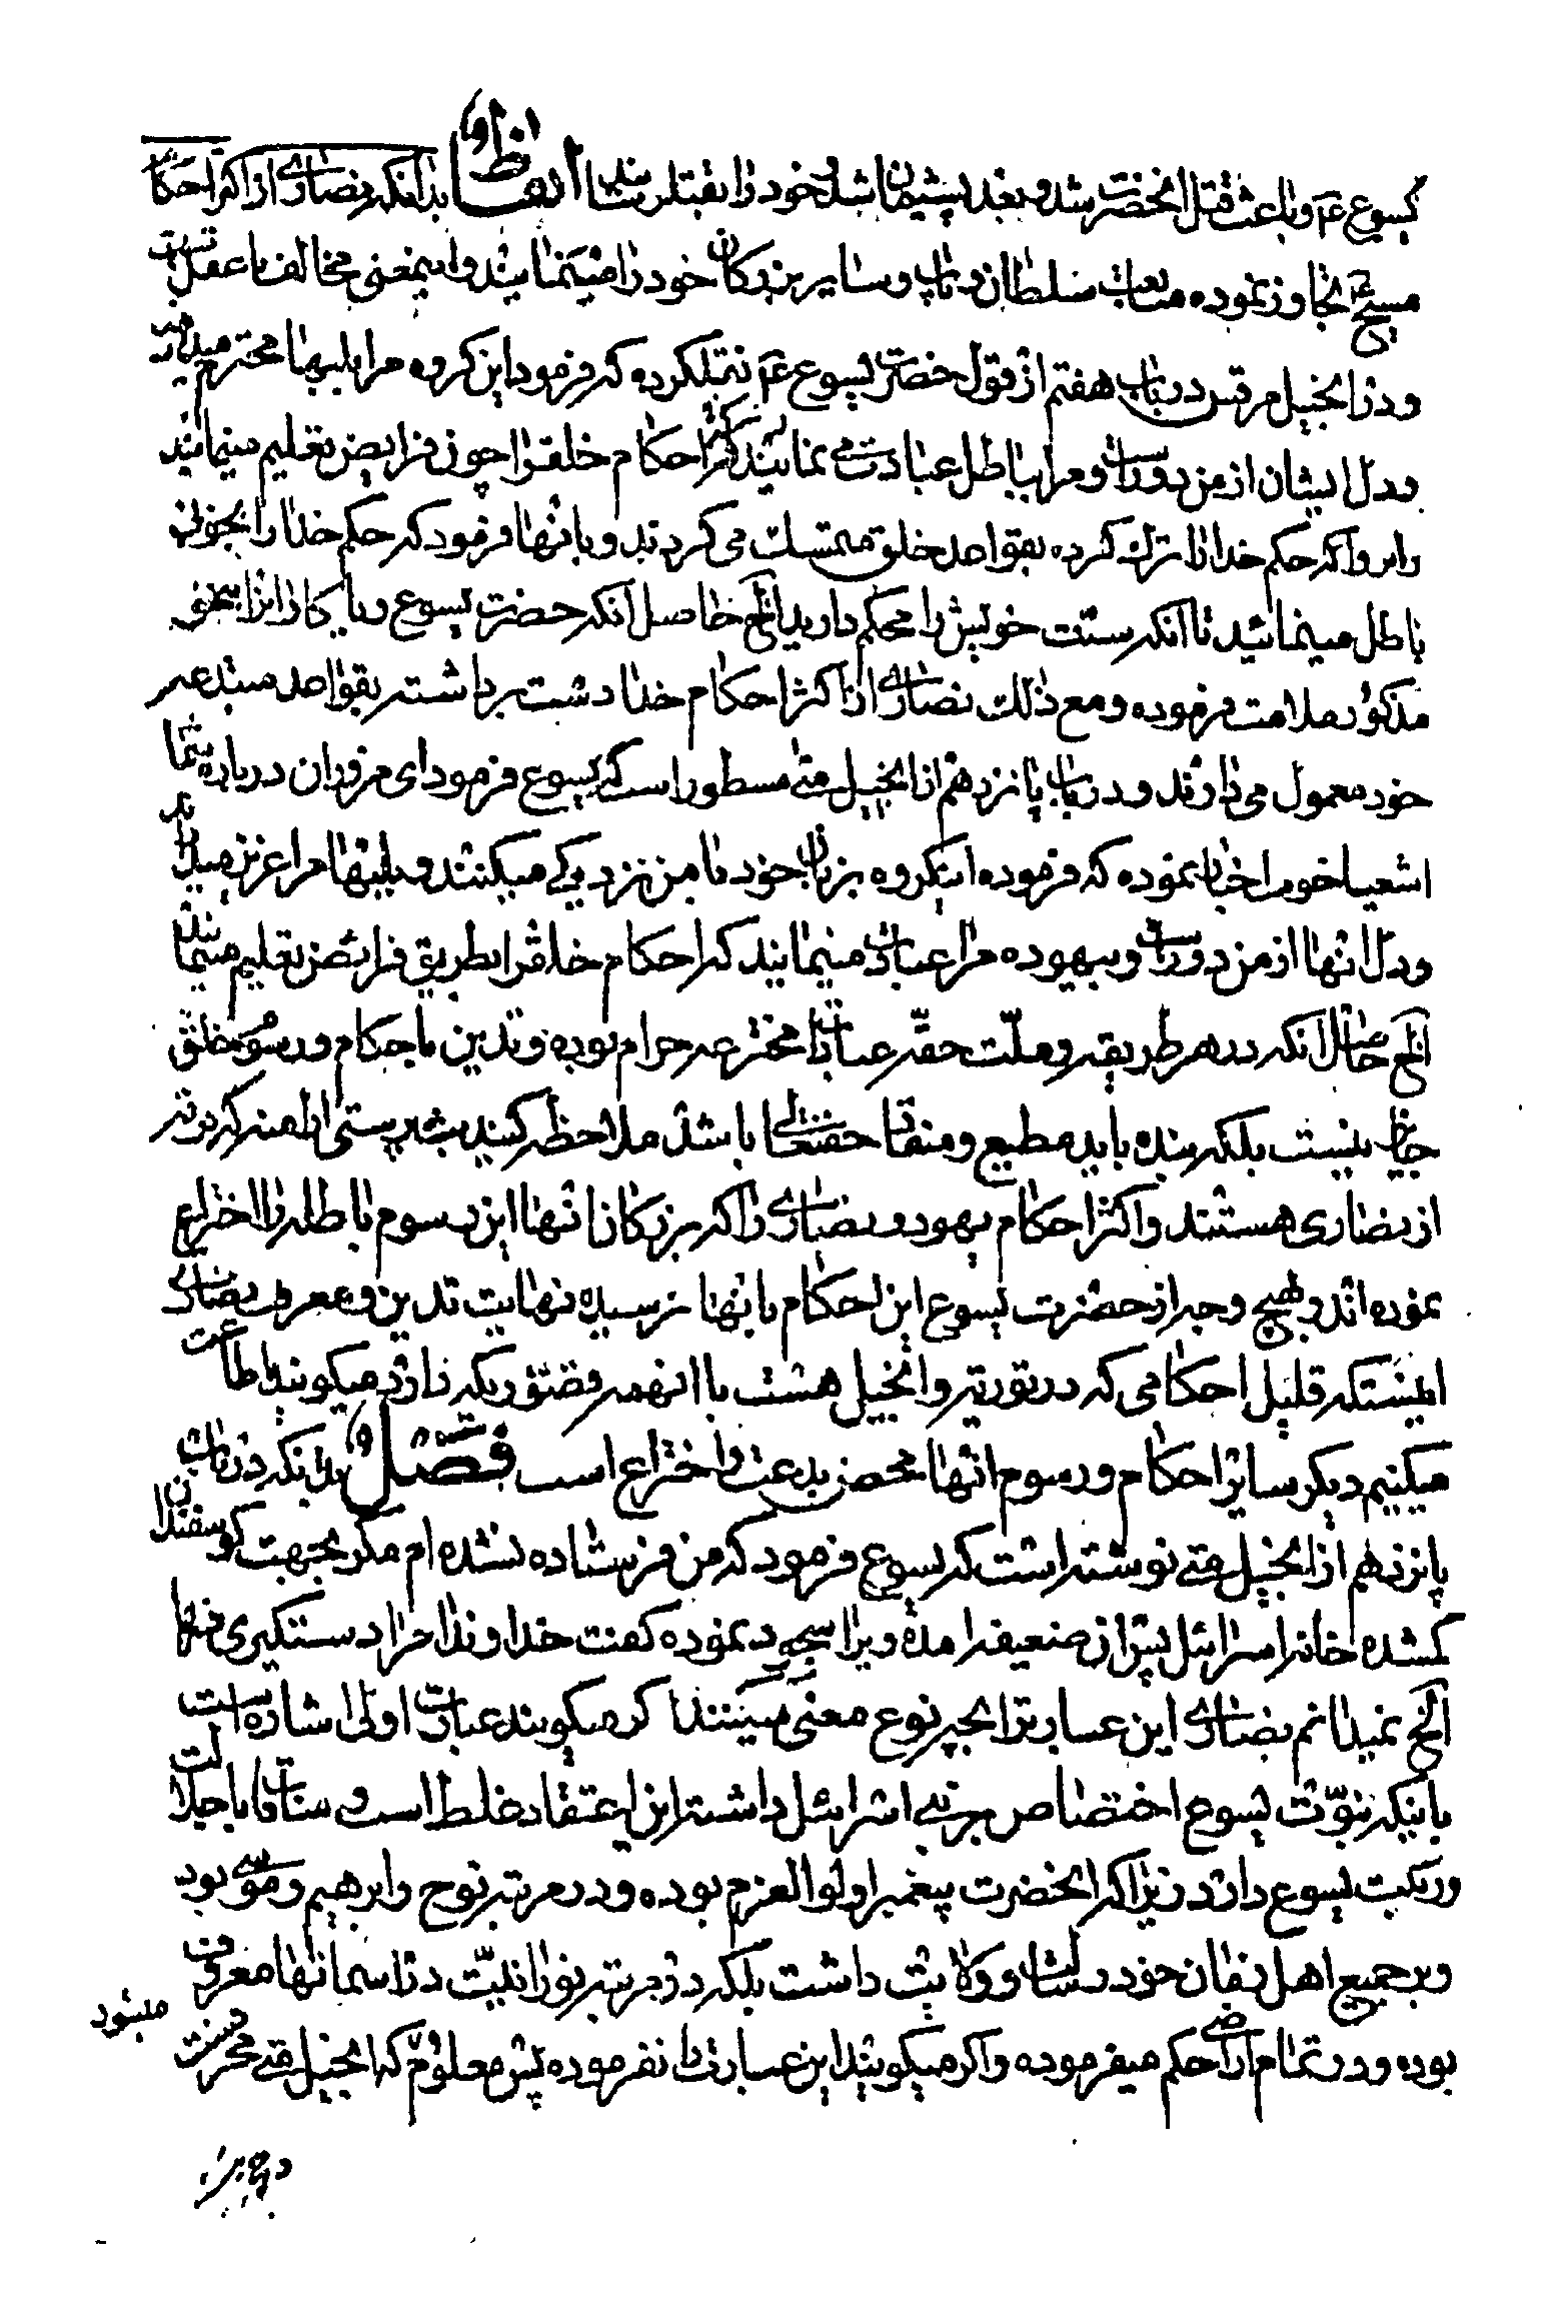 یسوع ع۴ و باعث قتل آنحضرت شد و بعد پشیمان شد و خود را بقتل رسانید ایضا بدانکه نصاری از اکثر احکام
مسیح تجاوز نموده متابعت سلطان و پاپ و سایر بزرکان خود را مینمایند و اینمعنی مخالف با عقل است
و در انجیل مرقس در باب هفتم از قول حضرت یسوع ع۴ نقل کرده که فرمود این کروه مرا بلبها محترم میدارند
و دل ایشان از من دور است و مرا بباطل عبادت می نمایند که احکام خلق را چون فرایض تعلیم مینمایند
حکم خدا را ترک کرده بقواعد خلق متمسک می کردند و بآنها فرمود که حکم خدا را بخوبی
باطل مینمائید تا آنکه سنت خویش را محکم دارید الخ حاصل آنکه حضرت یسوع ریاکاران را بنحو
مذکور ملامت فرموده و مع ذلک نصاری از اکثر احکام خدا دست برداشته بقواعد مبتدعه
خود معمول می دارند و در باب پانزدهم از انجیل متی مسطور است که یسوع فرمود ای مزوران در باره شما
اشعیا خوب اخبار نموده که فرموده اینکروه بزبان خود با من نزدیکی میکنند و بلبها مرا عزیز میدارند
و دل آنها از من دور است و بیهوده مرا عبادت مینمایند که احکام خلق را بطریق فرائض تعلیم مینمایند
الخ حاصل آنکه در هر طریقه و ملّت حقّه عبادات مخترعه حرام بوده و تدین باحکام و رسوم خلق
جایز نیست بلکه بنده باید مطیع و منقاد حقتعالی باشد ملاحظه کنید بت پرستی
از نصاری هستند و اکثر احکام یهود و نصاری را که بزرکان آنها این رسوم باطله را اختراع
نموده اند و بهیچ وجه از حضرت یسوع این احکام بآنها نرسیده نهایت تدین و معرفت نصاری
اینستکه قلیل احکامی که در توریة و انجیل هست با آنهمه قصوریکه دارد میکویند اطاعت
میکنیم دیکر سایر احکام و رسوم آنها محض بدعت و اختراع است فصل بدانکه در باب
پانزدهم از انجیل متی نوشته است که یسوع فرمود که من فرستاده نشده ام مکر بجهت کوسفندان
کمشده خانه اسرائیل پس آن ضعیفه آمده ویرا سجده نموده کفت خداوندا مرا دستکیری فرما
الخ نمیدانم نصاری این عبارترا بچه نوع معنی میکنند اکر میکویند عبارت اولی اشاره است
باینکه نبوّت یسوع اختصاص ببنی اسرائیل داشته این اعتقاد غلط است و منافات با جلالت
و رتبت یسوع دارد زیرا که آنحضرت پیغمبر اولوالعزم بوده و در مرتبه نوح و ابرهیم و موسی بود
و بر جمیع اهل زمان خود رسالت و ولایت داشت بلکه در مرتبه نورانیّت در آسمانها معروف
بوده و در تمام اراضی حکم میفرموده و اکر میکویند این عبارت را نفرموده پس معلوم که انجیل متی محرف است
میشود